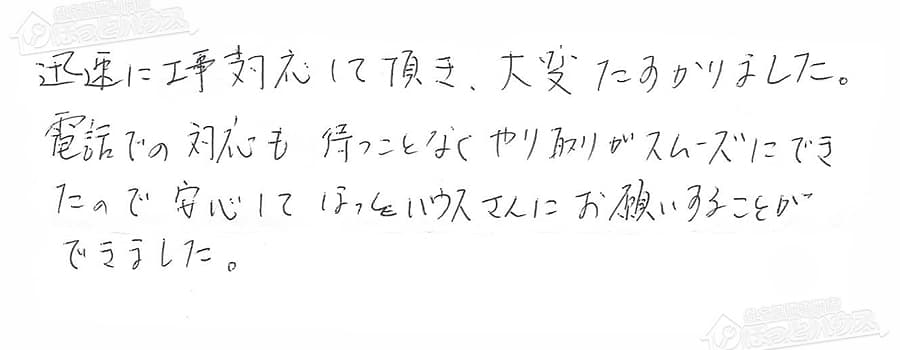 迅速に工事対応して頂き、大変たすかりました。
電話での対応も待つことなくやり取りがスムーズにでき
たので安心してほっとハウスさんにお願いすることが
できました。
ほっとハウス
ほっとハウス